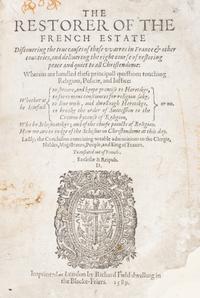 THE
RESTORER OF THE
FRENCH ESTATE
Discovering the true causes of these warres in France & other
countries, and delivering the right course of restoring
peace and quiet to all Christendome:
Wherein are handled these principall questions touching
Religion, Policie, and Iustice:
Whether it
be lawfull
to sweare, and keepe promise to Heretikes,
to force mens consciences for religion sake,
to live with, and dwell nigh Heretikes,
to breake the order of Succession to the
Crowne bycause of Religion,
or no.
Who be Schismatikes; and of the chiefe points of Religion.
How we are to iudge of the Schisme in Christendome at this day.
Lastly, the Conclusion conteining notable admonitions to the Clergie,
Nobles, Magistrates, People, and King of France.
Translated out of French.
Ecclesiæ & Reipub.
D.
Imprinted at London by Richard Field dwelling in
the Blacke-Friars. 1589.